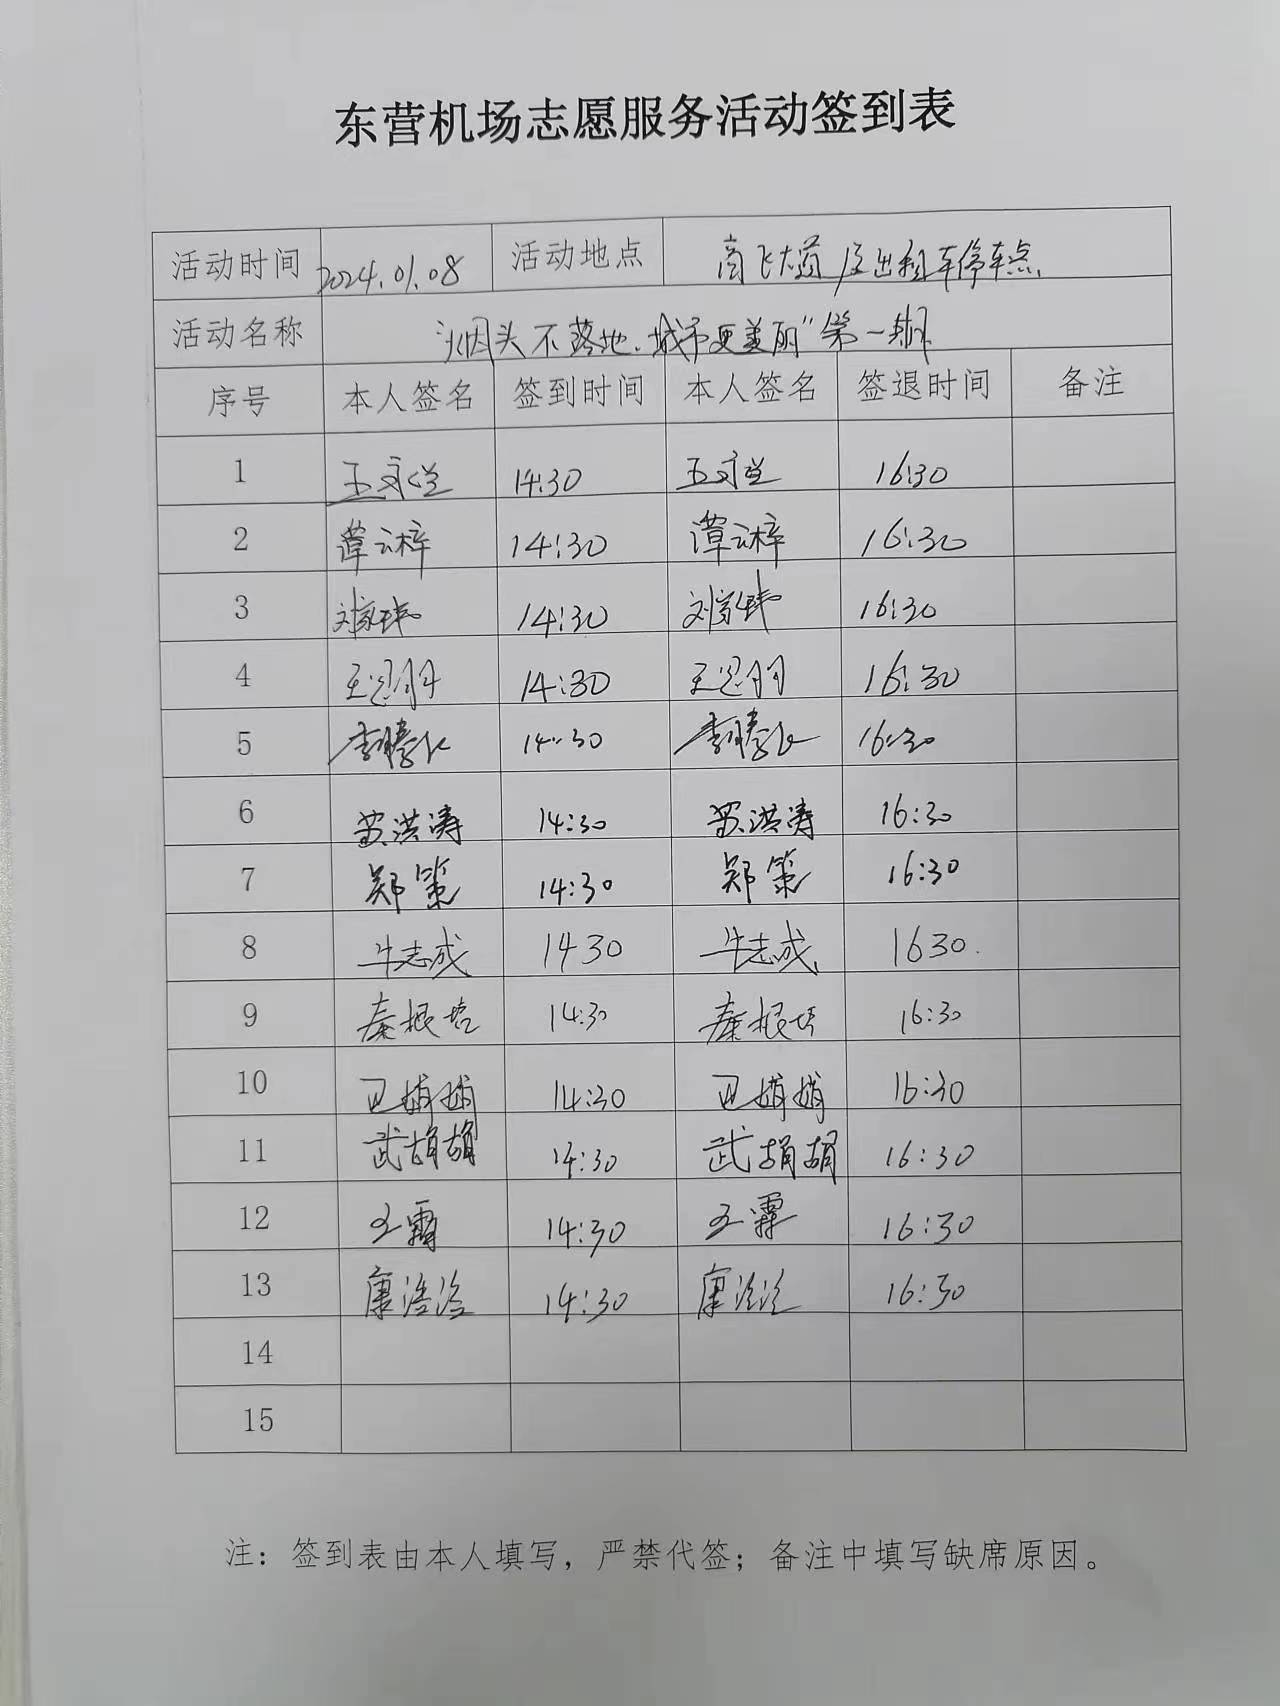 东营机场志愿服务活动签到表
活动时间 2024.01.08 活动地点 商飞大道及出租车停车点
活动名称 "烟头不落地.城市更美丽"第一期
序号 本人签名 签到时间 本人签名 签退时间 备注
1 14:30 16:30
2 14:30 16:30
3 14:30 16:30
4 14:30 16:30
5 14:30 16:30
6 14:30 16:30
7 郑策 14:30 郑策 16:30
8 牛志成 14:30 牛志成 16:30
9 秦根培 14:30 秦根培 16:30
10 卫娟娟 14:30 卫娟娟 16:30
11 武娟娟 14:30 武娟娟 16:30
12 王霖 14:30 王霖 16:30
13 14:30 16:30
14
15
注：签到表由本人填写，严禁代签；备注中填写缺席原因。